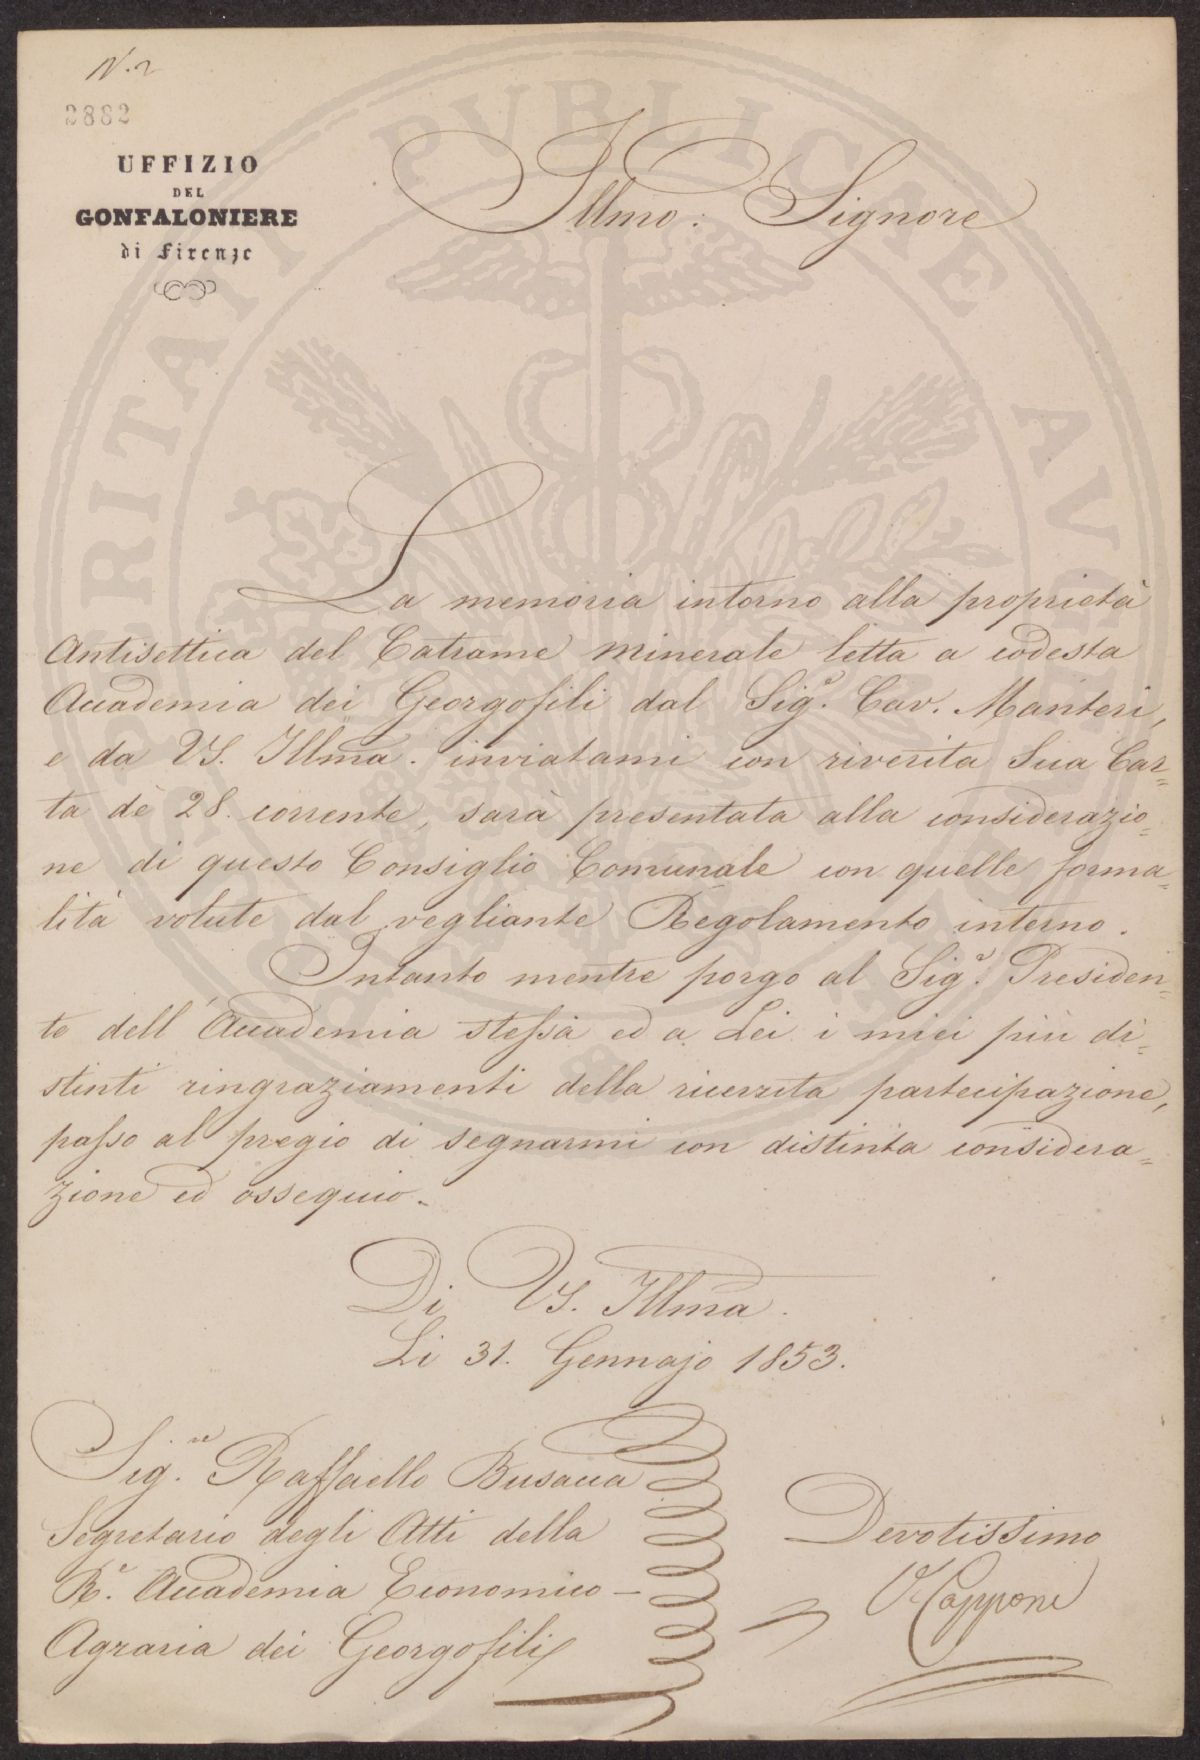 N. 2
2882
UFFIZIO
DEL
GONFALONIERE
di Firenze
Illmo: Signore
La memoria intorno alla proprietà
Antisettica del Catrame minerale letta a codesta
Accademia dei Georgofili dal Sig.e Cav. Manteri,
e da VS. Illma. inviatami con riverita Sua Car=
ta de 28. corrente, sarà presentata alla considerazio=
ne di questo Consiglio Comunale con quelle forma=
lità volute dal vegliante Regolamento interno.
Intanto mentre porgo al Sig.e Presiden=
te dell'Accademia stessa ed a Lei i miei più di=
stinti ringraziamenti della ricevuta partecipazione,
passo al pregio di segnarmi con distinta considera=
zione ed ossequio.
Di VS. Illma.
Li 31. Gennajo 1853.
Sig.re Raffaello Busacca
Segretario degli Atti della
R.e Accademia Economico-
Agraria dei Georgofili
Devotissimo
Capponi
PUBLICAE
PROSPERITATI